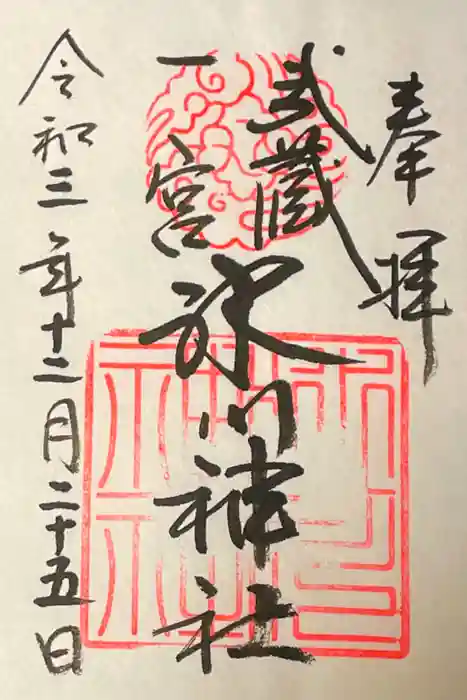 奉拝
武蔵
一宮
氷川神社
令和三年十二月二十五日